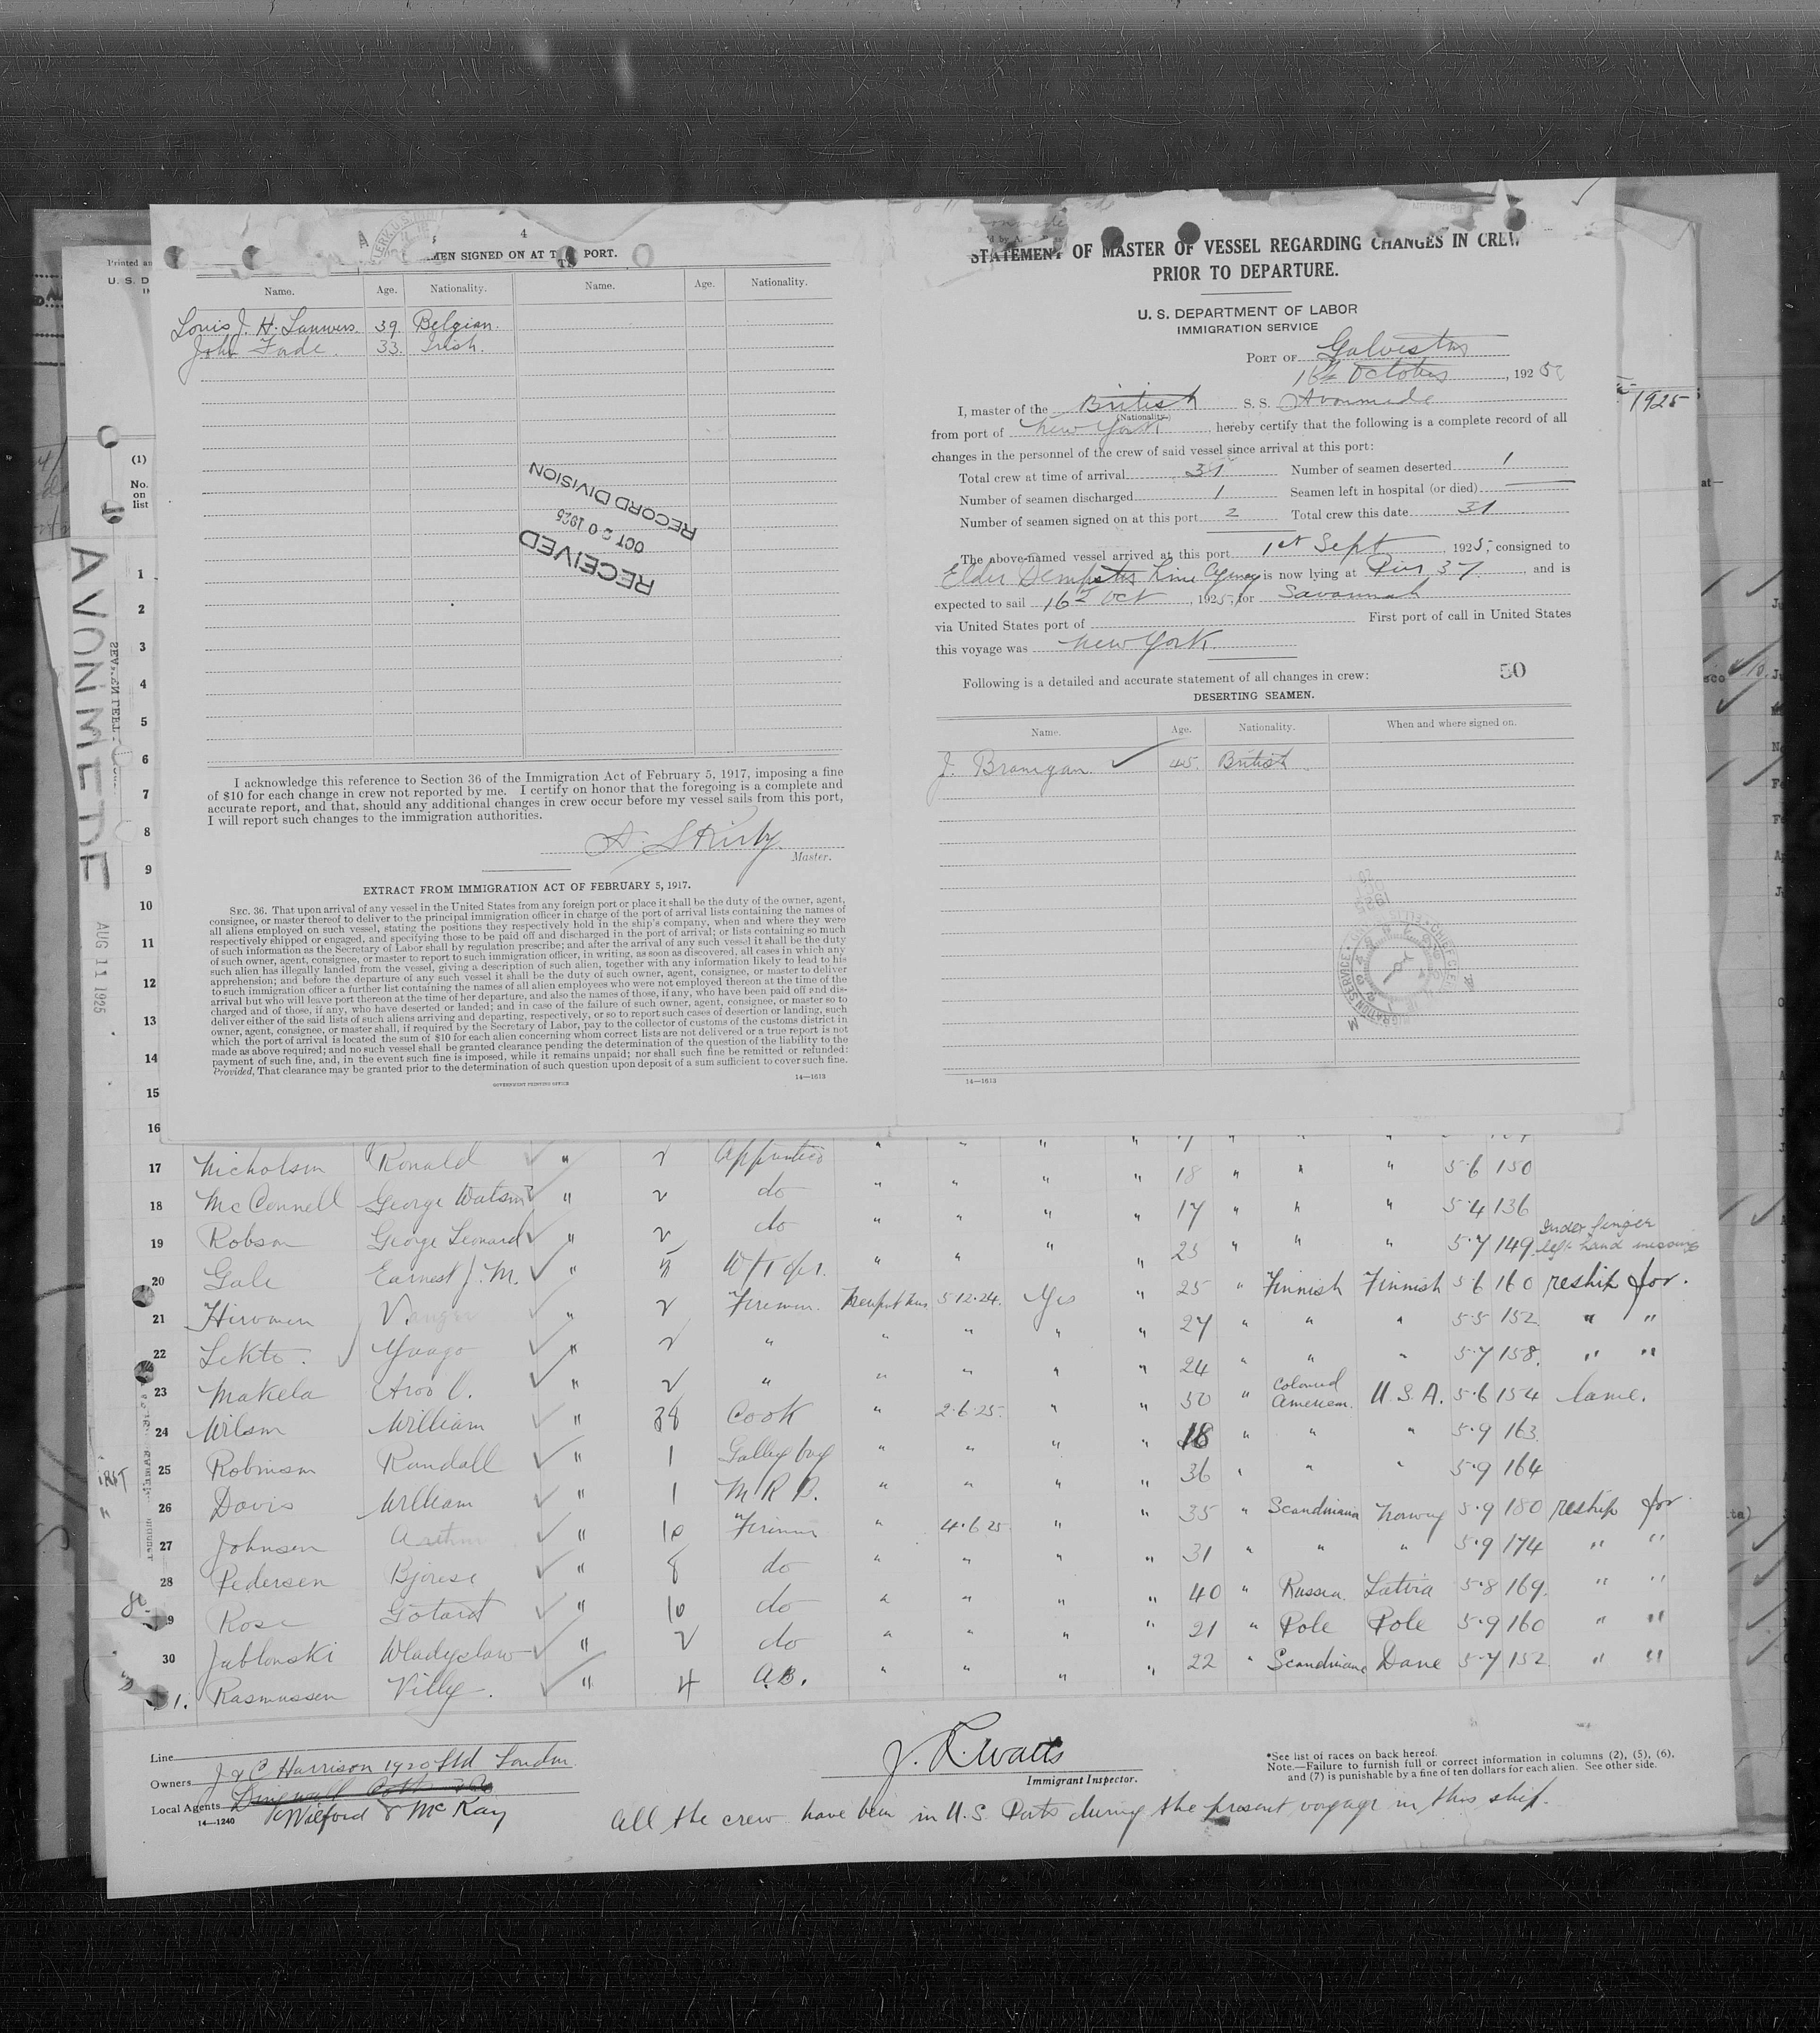 4
SEAMEN SIGNED ON AT THIS PORT.
Name. Age. Nationality. Name. Age. Nationality.
Louis J. H. Lauwers. 39. Belgian.
John Fade. 33. Irish.
RECEIVED
OCT 20 1925
RECORD DIVISION
I acknowledge this reference to Section 36 of the Immigration Act of February 5, 1917, imposing a fine
of $10 for each change in crew not reported by me. I certify on honor that the foregoing is a complete and
accurate report, and that, should any additional changes in crew occur before my vessel sails from this port,
I will report such changes to the immigration authorities.
A. S Kirby
Master.
EXTRACT FROM IMMIGRATION ACT OF FEBRUARY 5, 1917.
SEC. 36. That upon arrival of any vessel in the United States from any foreign port or place it shall be the duty of the owner, agent,
consignee, or master thereof to deliver to the principal immigration officer in charge of the port of arrival lists containing the names of
all aliens employed on such vessel, stating the positions they respectively hold in the ship's company, when and where they were
respectively shipped or engaged, and specifying those to be paid off and discharged in the port of arrival; or lists containing so much
of such information as the Secretary of Labor shall by regulation prescribe; and after the arrival of any such vessel it shall be the duty
of such owner, agent, consignee, or master to report to such immigration officer, in writing, as soon as discovered, all cases in which any
such alien has illegally landed from the vessel, giving a description of such alien, together with any information likely to lead to his
apprehension; and before the departure of any such vessel it shall be the duty of such owner, agent, consignee, or master to deliver
to such immigration officer a further list containing the names of all alien employees who were not employed thereon at the time of the
arrival but who will leave port thereon at the time of her departure, and also the names of those, if any, who have been paid off and dis-
charged and of those, if any, who have deserted or landed; and in case of the failure of such owner, agent, consignee, or master so to
deliver either of the said lists of such aliens arriving and departing, respectively, or so to report such cases of desertion or landing, such
owner, agent, consignee, or master shall, if required by the Secretary of Labor, pay to the collector of customs of the customs district in
which the port of arrival is located the sum of $10 for each alien concerning whom correct lists are not delivered or a true report is not
made as above required; and no such vessel shall be granted clearance pending the determination of the question of the liability to the
payment of such fine, and, in the event such fine is imposed, while it remains unpaid; nor shall such fine be remitted or refunded:
Provided, That clearance may be granted prior to the determination of such question upon deposit of a sum sufficient to cover such fine.
GOVERNMENT PRINTING OFFICE 14—1613
STATEMENT OF MASTER OF VESSEL REGARDING CHANGES IN CREW
PRIOR TO DEPARTURE.
U. S. DEPARTMENT OF LABOR
IMMIGRATION SERVICE
PORT OF Galveston
16th October, 1925
I, master of the British S. S. Avonmede
(Nationality.)
from port of New York, hereby certify that the following is a complete record of all
changes in the personnel of the crew of said vessel since arrival at this port:
Total crew at time of arrival 31 Number of seamen deserted 1
Number of seamen discharged 1 Seamen left in hospital (or died)
Number of seamen signed on at this port 2 Total crew this date 31
The above-named vessel arrived at this port 1st Sept, 1925, consigned to
Elder Dempster Line Agency is now lying at Pier 37, and is
expected to sail 16th Oct, 1925, for Savannah
via United States port of First port of call in United States
this voyage was New York
50
Following is a detailed and accurate statement of all changes in crew:
DESERTING SEAMEN.
Name. Age. Nationality. When and where signed on.
J. Branigan. 45. British
14—1613
1925
Printed an
U. S. D
(1)
No.
on
list
AVONMEDE
AUG 11 1925
1
2
3
4
5
6
7
8
9
10
11
12
13
14
15
16
17 Nicholson Ronald " 2 Apprentice " " " "
18 McConnell George Watson " 2 do " " " " 18 " " " 5·6 150
19 Robson George Leonard " 2 do " " " " 17 " " " 5·4 136
20 Gale Earnest J. M. " 5 W/T Opr. " " " " 25 " " " 5·7 149 Index finger left hand missing
21 Hirvonen " 2 Fireman 5·12·24 Yes " 25 " Finnish Finnish 5·6 160 reship for.
22 Lekto. Yuago " 2 " " " " " 27 " " " 5·5 152 " "
23 Makela Arvo V. " 2 " " " " " 24 " " " 5·7 158 " "
24 Wilson William " 38 Cook " 2·6·25 " " 50 " Colored American U.S.A. 5·6 154 lame.
25 Robinson Randall " 1 Galley boy " " " " 18 " " " 5·9 163
26 Davis William " 1 M R B. " " " " 36 " " " 5·9 164
27 Johnsen Arthur " 10 Fireman " 4·6·25 " " 35 " Scandinavia Norway 5·9 180 reship for
28 Pedersen " 8 do " " " " 31 " " " 5·9 174 " "
29 Rose Gotard " 10 do " " " " 40 " Russia Latvia 5·8 169 " "
30 Jablonski Wladyslaw " 2 do " " " " 21 " Pole Pole 5·9 160 " "
31. Rasmussen Villy. " 4 A.B. " " " " 22 " Scandinavia Dane 5·7 152 " "
Line
Owners J & C Harrison 1920 Ltd London
Local Agents
Wilford & McKay
14—1240
J. R. Watts
Immigrant Inspector.
*See list of races on back hereof.
Note.—Failure to furnish full or correct information in columns (2), (5), (6),
and (7) is punishable by a fine of ten dollars for each alien. See other side.
All the crew have been in U.S. Ports during the present voyage in this ship.